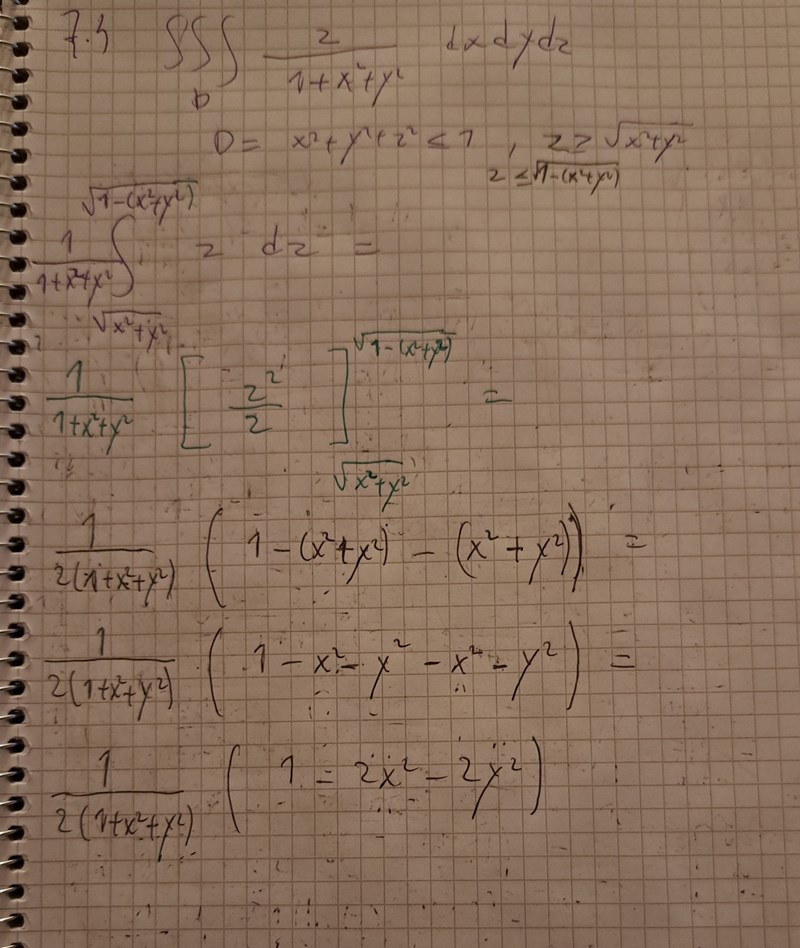 7.4 ∫∫∫_D z/(1+x²+y²) dx dy dz
D = x²+y²+z² ≤ 1 , z ≥ √(x²+y²)
z ≤ √(1-(x²+y²))
1/(1+x²+y²) ∫_{√(x²+y²)}^{√(1-(x²+y²))} z dz =
1/(1+x²+y²) [ z²/2 ]_{√(x²+y²)}^{√(1-(x²+y²))} =
1/(2(1+x²+y²)) (1-(x²+y²) - (x²+y²)) =
1/(2(1+x²+y²)) (1-x²-y²-x²-y²) =
1/(2(1+x²+y²)) (1-2x²-2y²)